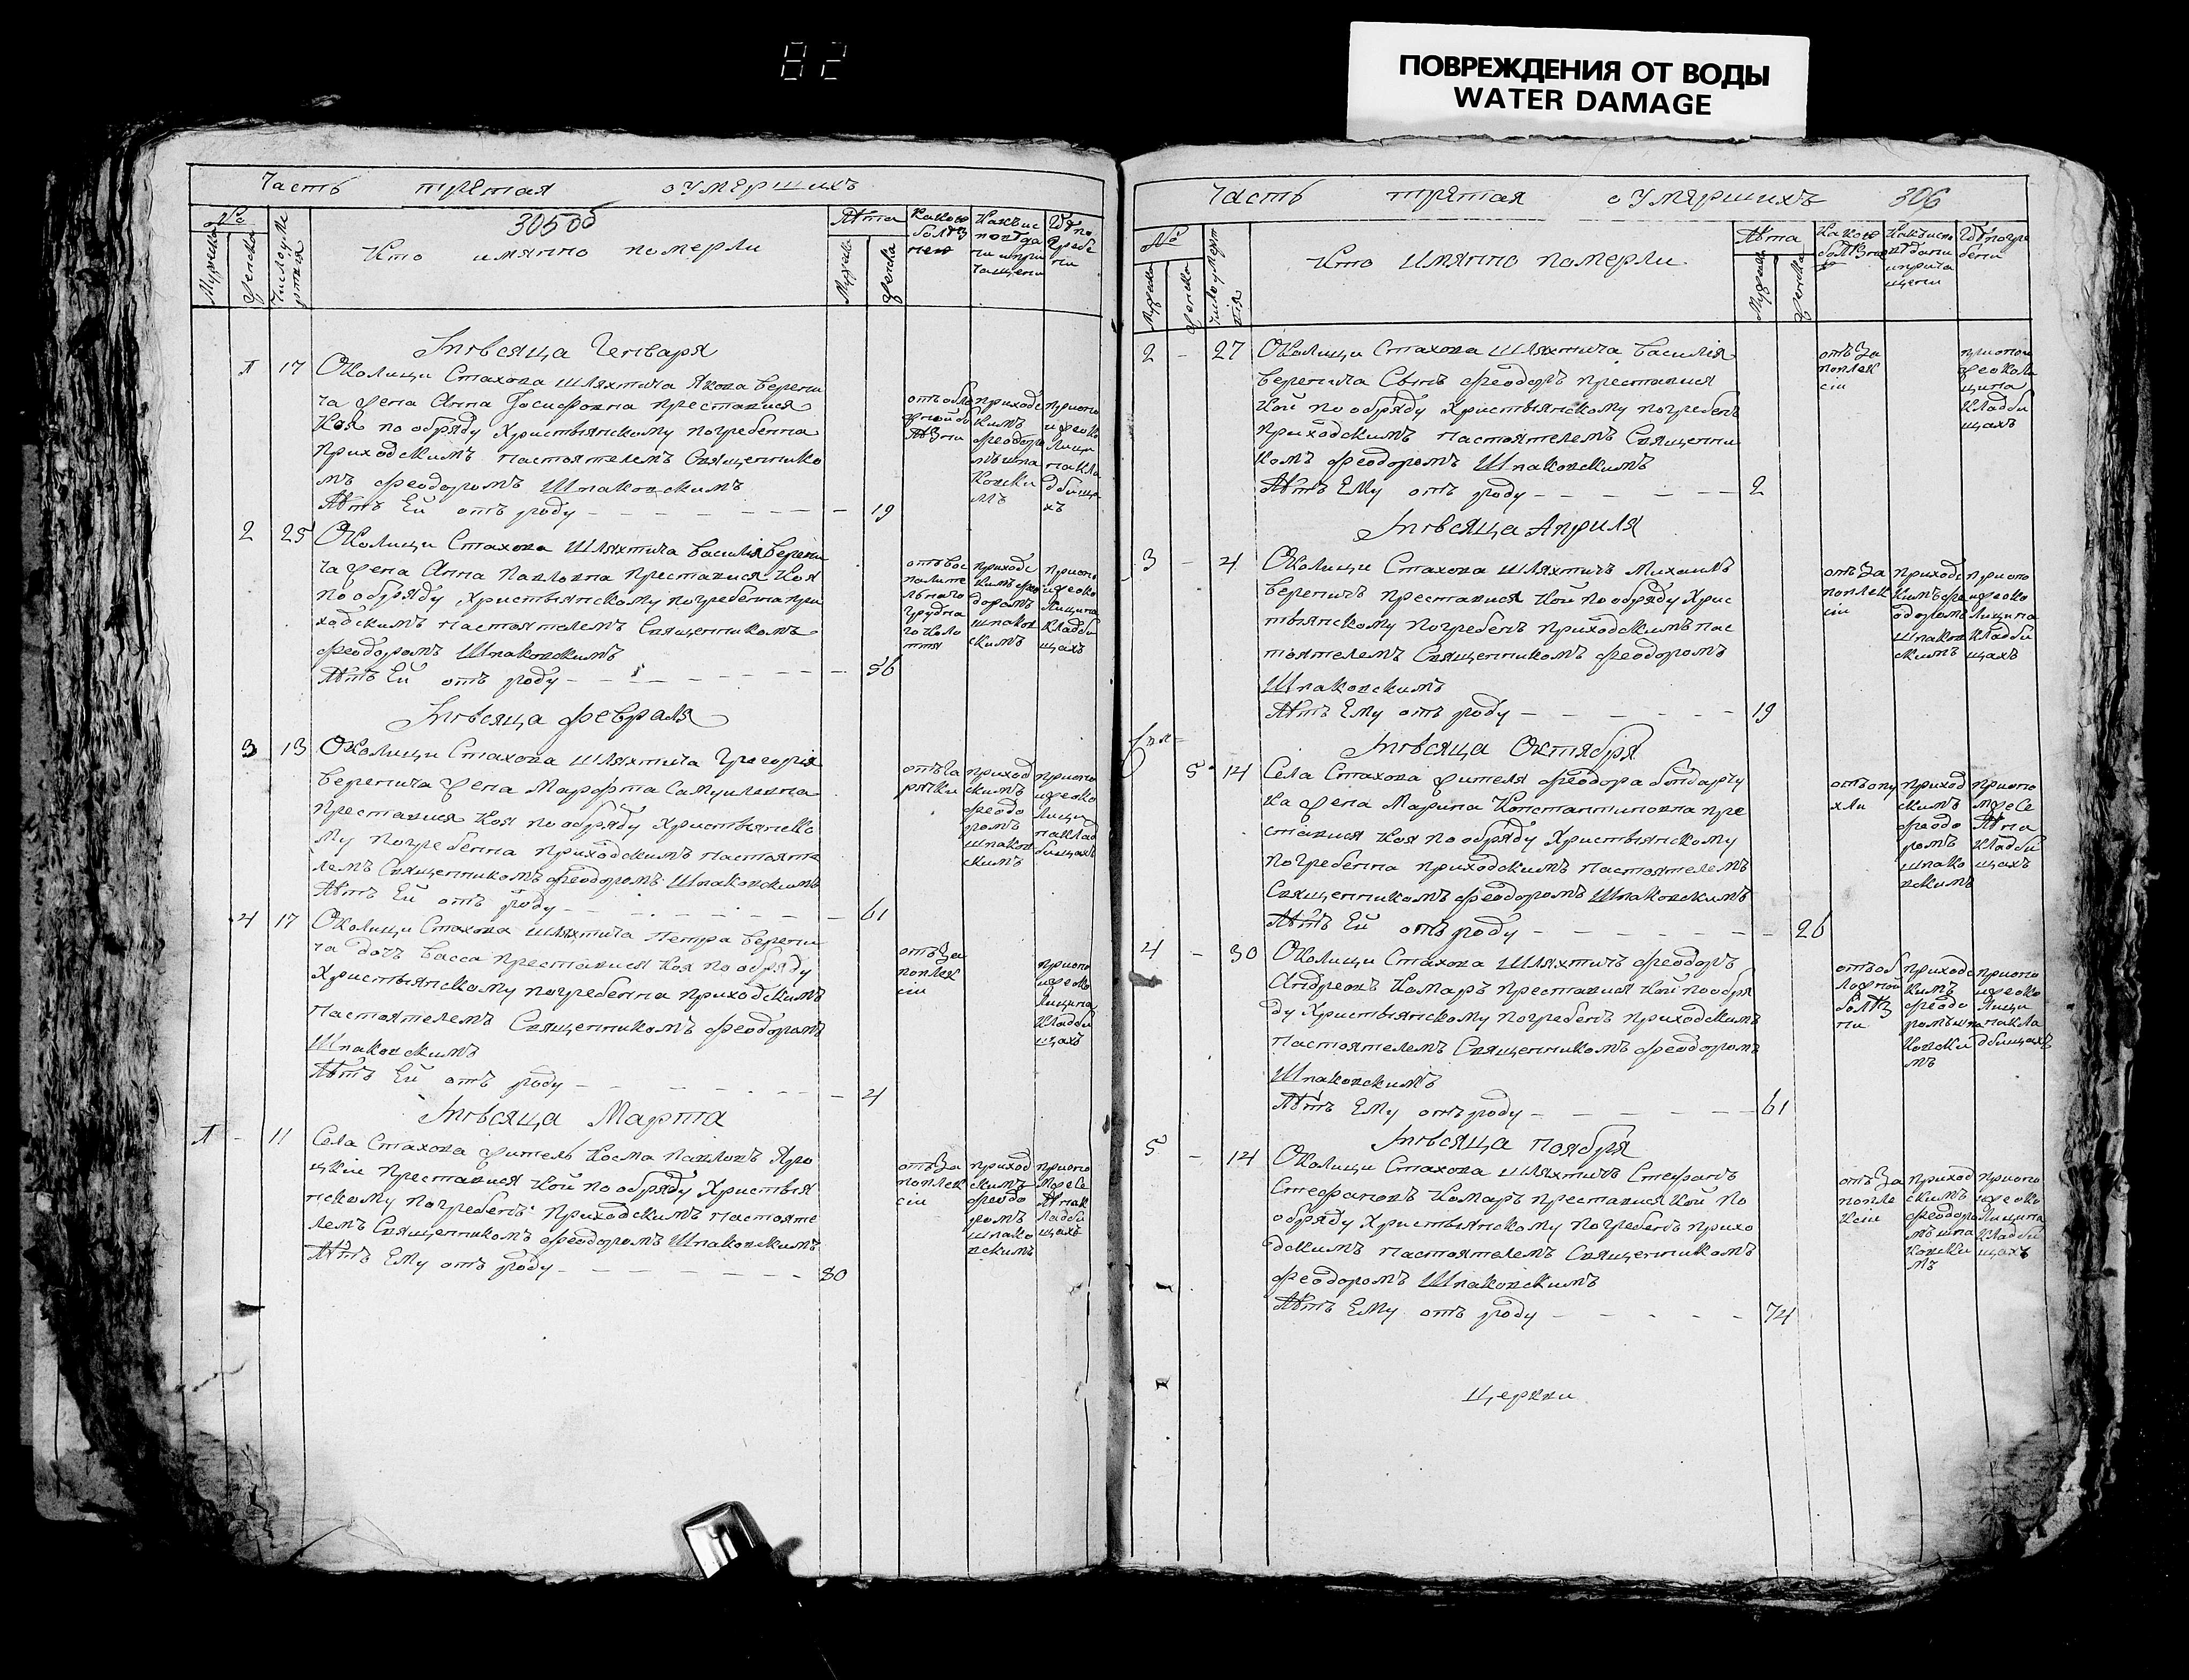 82
ПОВРЕЖДЕНИЯ ОТ ВОДЫ
WATER DAMAGE
Часть третая о умершихъ
305об
№
Мужеска
Женска
Кто имянно померли
Лѣта
Мужеска
Женска
Мѣсяца Генваря
1 17 Околици Стахова шляхтича Якова Верени
ча жена Анна Іосифовна преставися
Коя по обряду Христьянскому погребенна
приходскимъ настоятелемъ Священнико
мъ Феодоромъ Шпаковскимъ
Лѣтъ Ей отъ роду 19
приходс
кимъ
Феодоро
мъ шпа
ковски
мъ
2 25 Околици Стахова шляхтича Василія Верени
ча жена Анна Павловна преставися Коя
по обряду Христьянскому погребенна при
ходскимъ настоятелемъ Священникомъ
Феодоромъ Шпаковскимъ
Лѣтъ Ей отъ роду 56
отъ вос
палите
льнаго
грудна
го коло
тія
приходс
кимъ Фео
доромъ
шпаков
скимъ
Мѣсяца февраля
3 13 Околици Стахова шляхтича Григорія
Веренича жена Марфта Самуиловна
преставися Коя по обряду Христьянско
му погребенна приходскимъ настояте
лемъ Священникомъ Феодоромъ Шпаковскимъ
Лѣтъ Ей отъ роду 61
отъ га
рячки
приход
скимъ
Феодо
ромъ
шпаков
скимъ
4 17 Околици Стахова шляхтича Петра Верени
ча дочь Васса преставися Коя по обряду
Христьянскому погребенна приходскимъ
настоятелемъ Священникомъ Феодоромъ
Шпаковскимъ
Лѣтъ Ей отъ роду 4
отъ за
поплек
сіи
Мѣсяца Марта
1 - 11 Села Стахова житель Косма Павловъ Яро
цкіи преставися Кой по обряду Христья
нскому погребенъ приходскимъ настояте
лемъ Священникомъ Феодоромъ Шпаковскимъ
Лѣтъ Ему отъ роду 80
отъ за
поплек
сіи
приход
скимъ
Феодо
ромъ
шпако
вскимъ
Часть третая о умершихъ 306
№
Мужеска
Женска
Кто имянно померли
Лѣта
Мужеска
Женска
2 - 27 Околици Стахова Шляхтича Василія
Веренича Сынъ Феодоръ преставися
Кой по обряду Христьянскому погребенъ
приходскимъ настоятелемъ Священни
комъ Феодоромъ Шпаковскимъ
Лѣтъ Ему отъ роду 2
отъ за
поплек
сіи
Мѣсяца Априля
3 - 4 Околици Стахова шляхтичъ Михаилъ
Вереничъ преставися Кой по обряду Хрис
тьянскому погребенъ приходскимъ нас
тоятелемъ Священникомъ Феодоромъ
Шпаковскимъ
Лѣтъ Ему отъ роду 19
отъ за
поплек
сіи
приходс
кимъ Фе
одоромъ
шпаков
скимъ
Мѣсяца Октября
5 14 Села Стахова жителя Феодора бондарчу
ка жена Марина Константиновна пре
ставися Коя по обряду Христьянскому
погребенна приходскимъ настоятелемъ
Священникомъ Феодоромъ Шпаковскимъ
Лѣтъ Ей отъ роду 26
отъ опу
хли
приход
скимъ
Феодо
ромъ
шпако
вскимъ
4 - 30 Околици Стахова шляхтичъ Феодоръ
Андреовъ Комаръ преставися Кой по обря
ду Христьянскому погребенъ приходскимъ
настоятелемъ Священникомъ Феодоромъ
Шпаковскимъ
Лѣтъ Ему отъ роду 61
приходс
кимъ
Феодо
ромъ шпа
ковски
мъ
Мѣсяца Ноября
5 - 14 Околици Стахова шляхтичъ Стефанъ
Стефановъ Комаръ преставися Кой по
обряду Христьянскому погребенъ прихо
дскимъ настоятелемъ Священникомъ
Феодоромъ Шпаковскимъ
Лѣтъ Ему отъ роду 74
отъ за
попле
ксіи
приход
скимъ
Феодоро
мъ шпа
ковски
мъ
Церкви